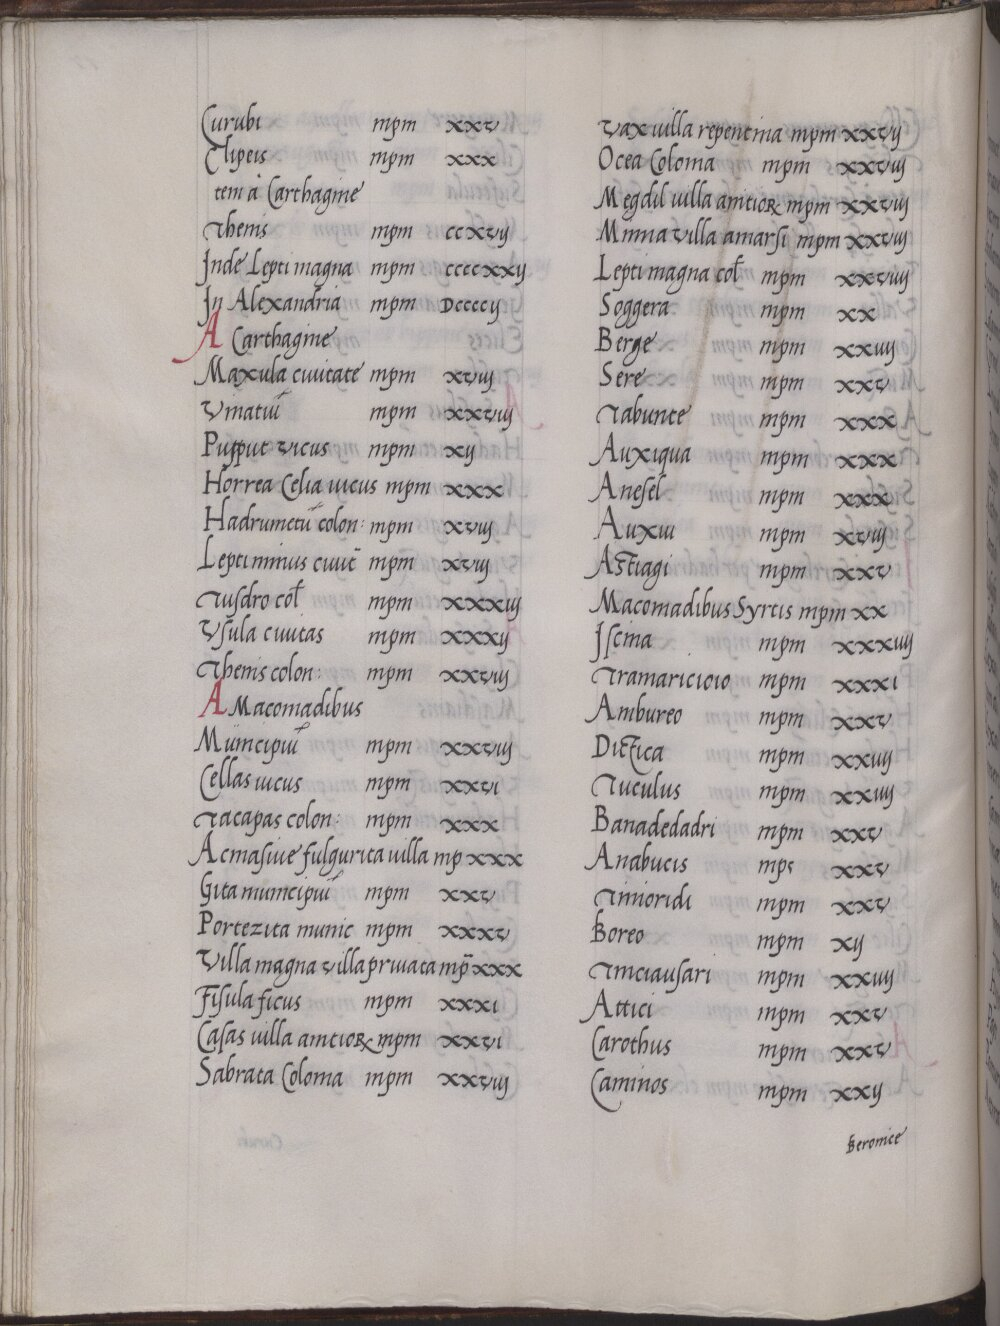 Curubi mpm xxv
Clipeis mpm xxx
tem à Carthagine
Thenis mpm ccxvij
Inde Lepti magna mpm ccccxxij
In Alexandria mpm Dccccij
A Carthagine
Maxula ciuitate mpm xviij
Vinatuĩ mpm xxviij
Pupput vicus mpm xij
Horrea Celia uicus mpm xxx
Hadrumetũ colon: mpm xviij
Lepti minus ciuit̃ mpm xviij
Tusdro col̃ mpm xxxiij
Vsula ciuitas mpm xxxij
Thenis colon: mpm xxviij
A Macomadibus
Municipiũ mpm xxviij
Cellas uicus mpm xxvi
Tacapas colon: mpm xxx
Acmasiue fulgurita uilla mp xxx
Gita municipiũ mpm xxv
Portezita munic mpm xxxv
Villa magna villa priuata mp̃ xxx
Fisula ficus mpm xxxi
Casas uilla anitioꝝ mpm xxvi
Sabrata Colonia mpm xxviij
vax uilla repentina mpm xxvij
Ocea Colonia mpm xxviij
Megdil uilla anitioꝝ mpm xxviij
Minna villa amarsi mpm xxviij
Lepti magna col̃ mpm xxviiij
Soggera mpm xx
Berge mpm xxiiij
Sere mpm xxv
Tabunte mpm xxx
Auxiqua mpm xxx
Anesel mpm xxx
Auxiu mpm xviij
Astiagi mpm xxv
Macomadibus Syrtis mpm xx
Iscina mpm xxxiiij
Tramaricioio mpm xxxi
Ambureo mpm xxv
Dictica mpm xxiiij
Tuculus mpm xxiiij
Banadedadri mpm xxv
Anabucis mps xxv
Tinioridi mpm xxv
Boreo mpm xij
Tinciausari mpm xxiiij
Attici mpm xxv
Carothus mpm xxv
Caminos mpm xxij
Beronice